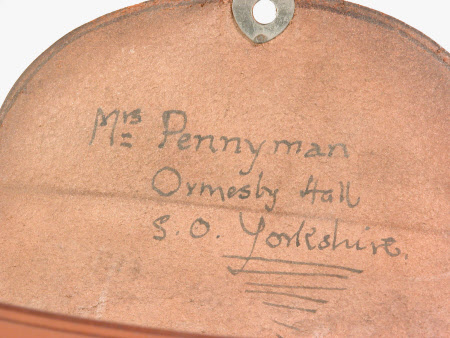 Mrs Pennyman
Ormesby Hall
S.O. Yorkshire.